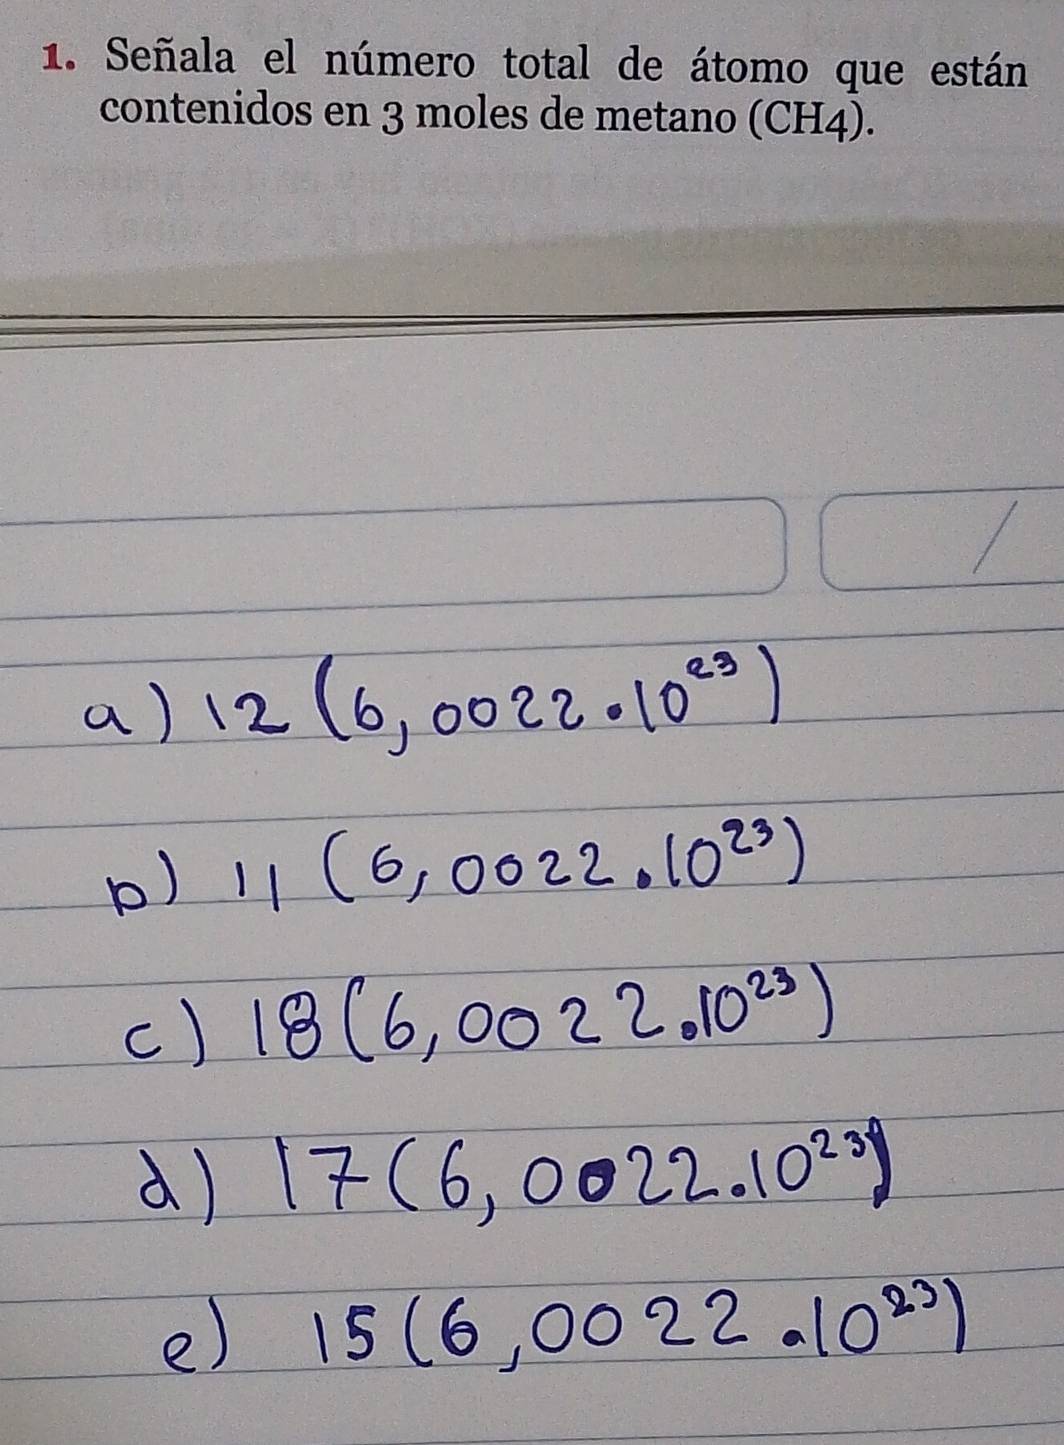 1. Señala el número total de átomo que están
contenidos en 3 moles de metano (CH4).
/
a) 12 (6,0022.10²³)
b) 11 (6,0022.10²³)
c) 18 (6,0022.10²³)
d) 17 (6,0022.10²³)
e) 15 (6,0022.10²³)